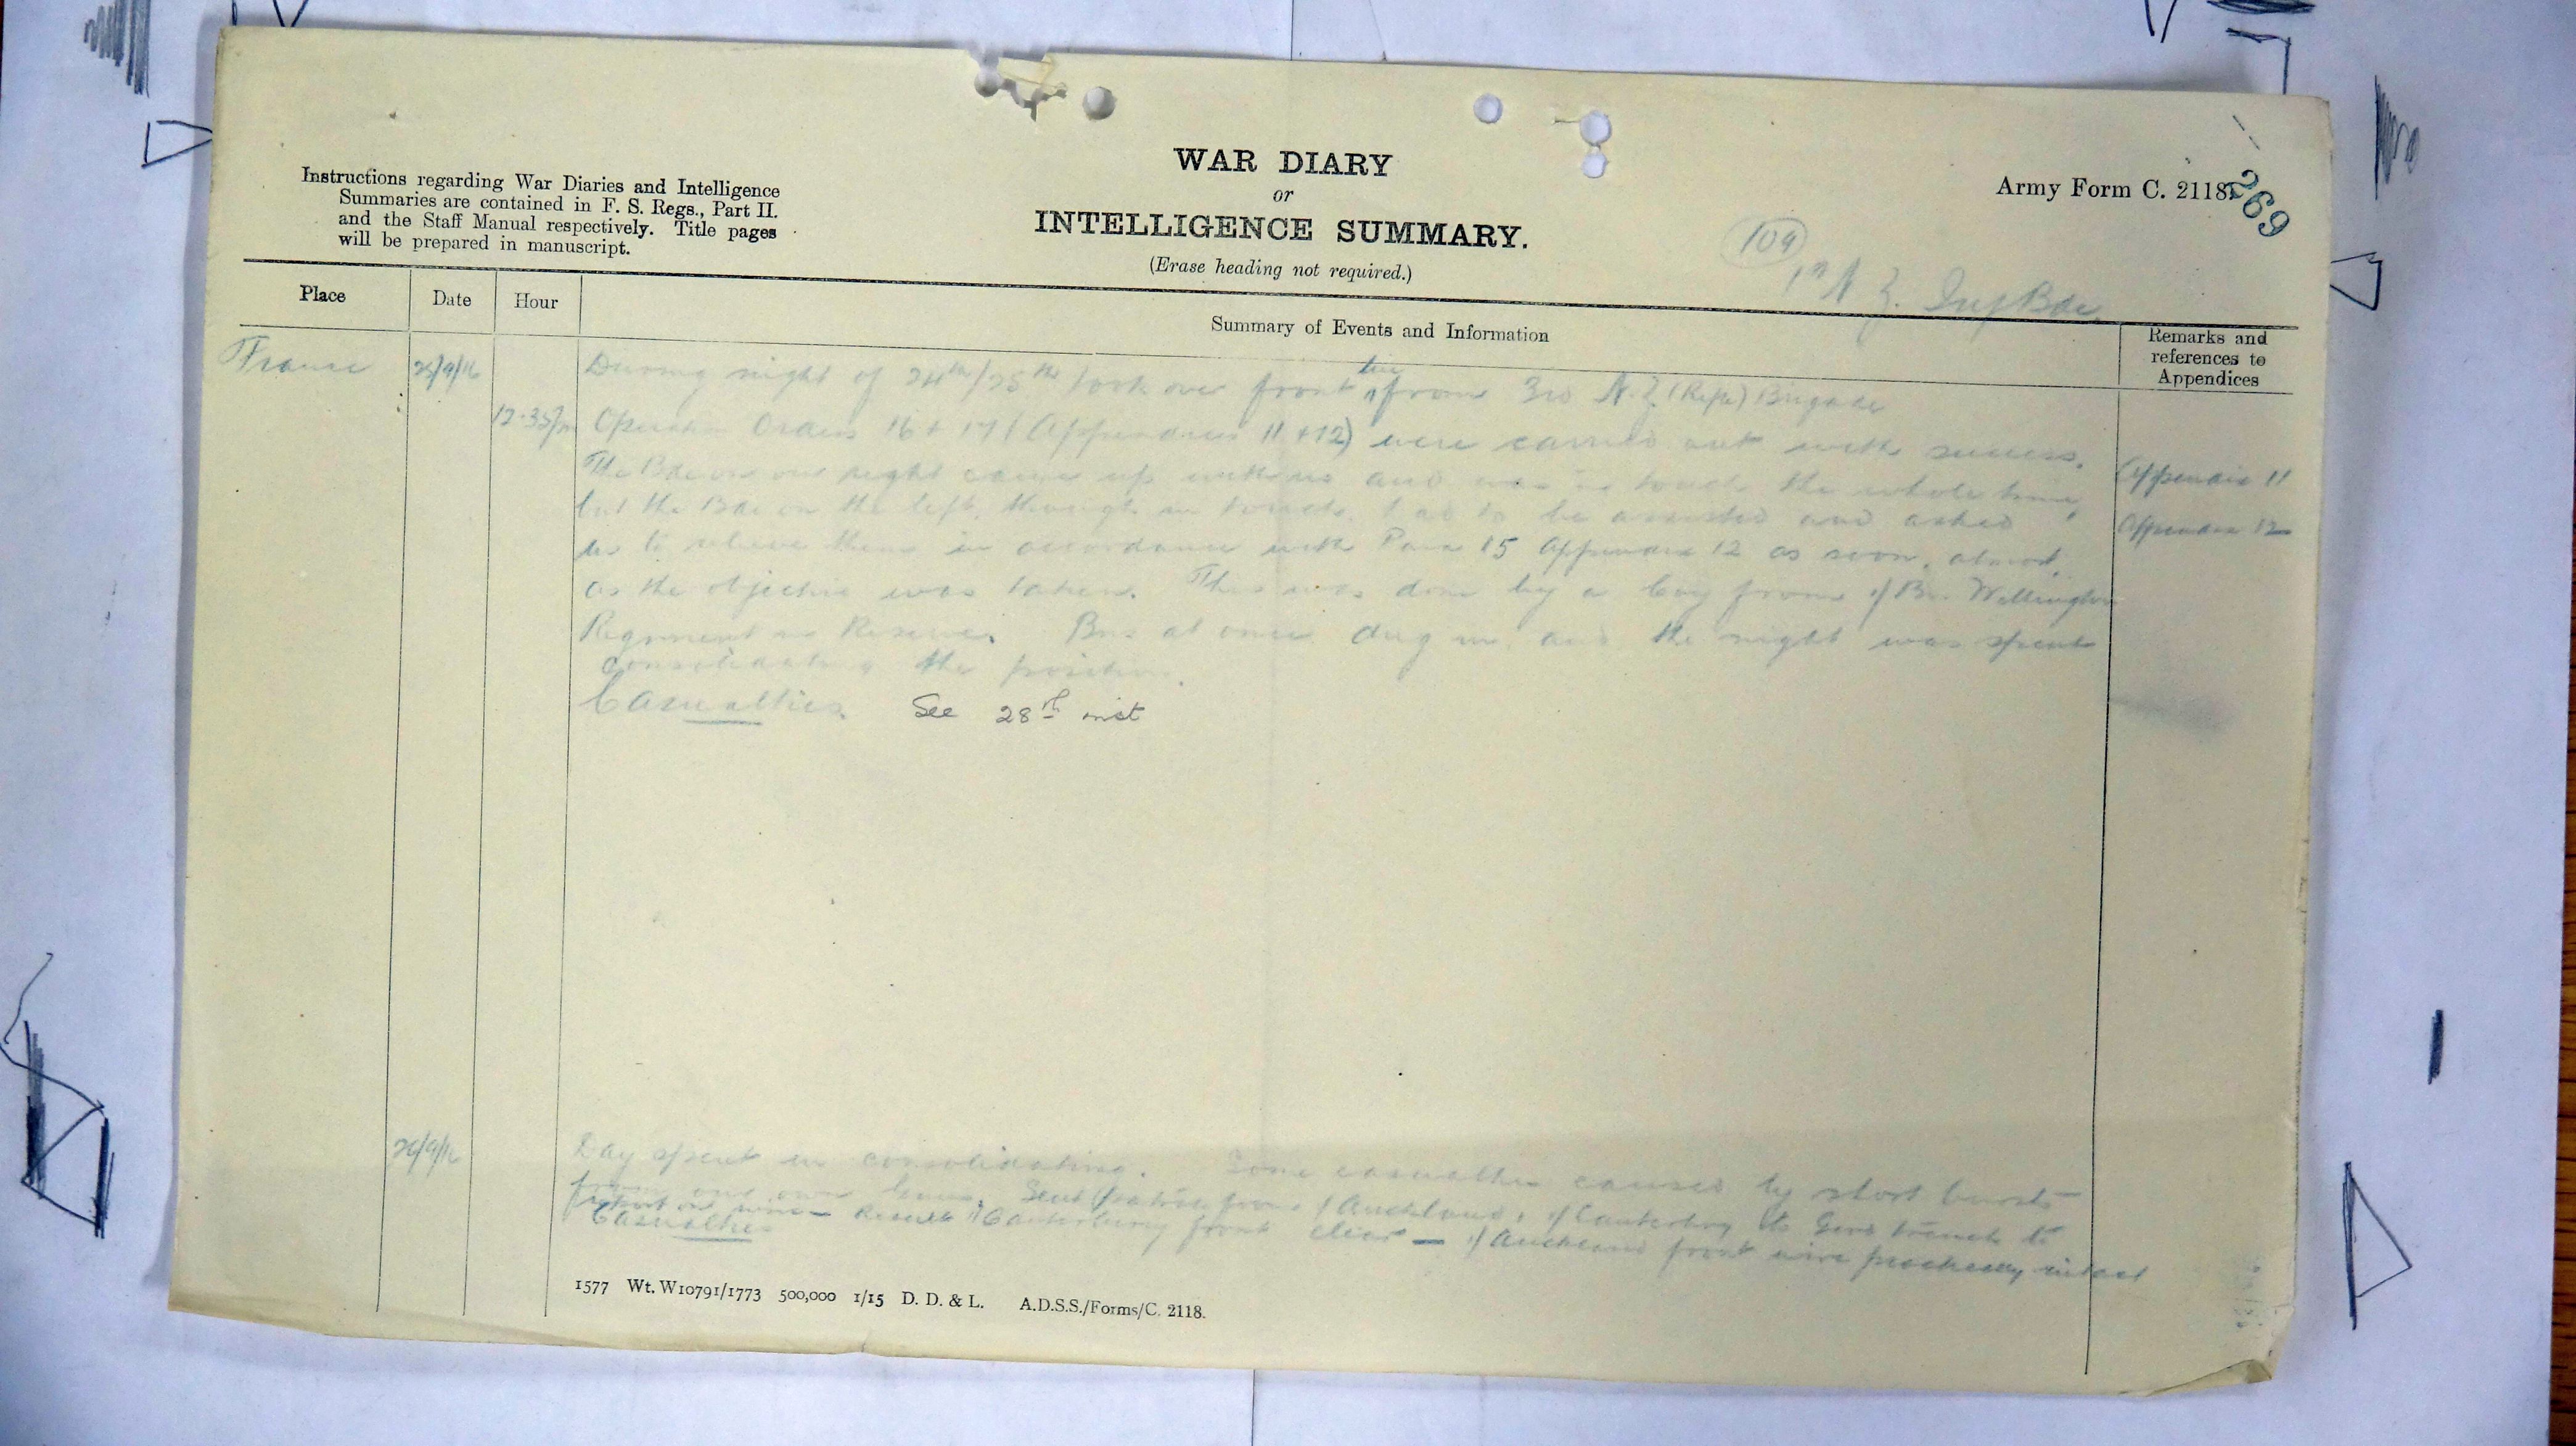 Instructions regarding War Diaries and Intelligence
Summaries are contained in F. S. Regs., Part II.
and the Staff Manual respectively. Title pages
will be prepared in manuscript.
WAR DIARY
or
INTELLIGENCE SUMMARY.
(Erase heading not required.)
Army Form C. 2118.
269
109
1st N Z. Inf Bde.
Place
Date
Hour
Summary of Events and Information
Remarks and
references to
Appendices
France
25/9/16
During night of 24th/25th took over front line from 3rd N.Z (Rifle) Brigade
12-35pm
Operation Orders 16 + 17 (Appendices 11 + 12) were carried out with success.
The Bde on our right came up with us and was in touch the whole time,
Appendix 11
but the Bde on the left, though in touch, had to be assisted and asked
Appendix 12
us to relieve them in accordance with Para 15 Appendix 12 as soon, almost,
as the objective was taken. This was done by a Coy from 1/Bn. Wellington
Regiment in Reserve. Bns at once dug in and the night was spent
consolidating the position.
Casualties. See 28th inst
26/9/16
Day spent in consolidating. Some casualties caused by short bursts
from our own guns. Sent patrols from 1/Auckland, 1/Canterbury to Gird trench to
report on wire - Result 1/Canterbury front clear - 1/Auckland front wire practically intact
Casualties
1577 Wt. W10791/1773 500,000 1/15 D. D. & L. A.D.S.S./Forms/C. 2118.